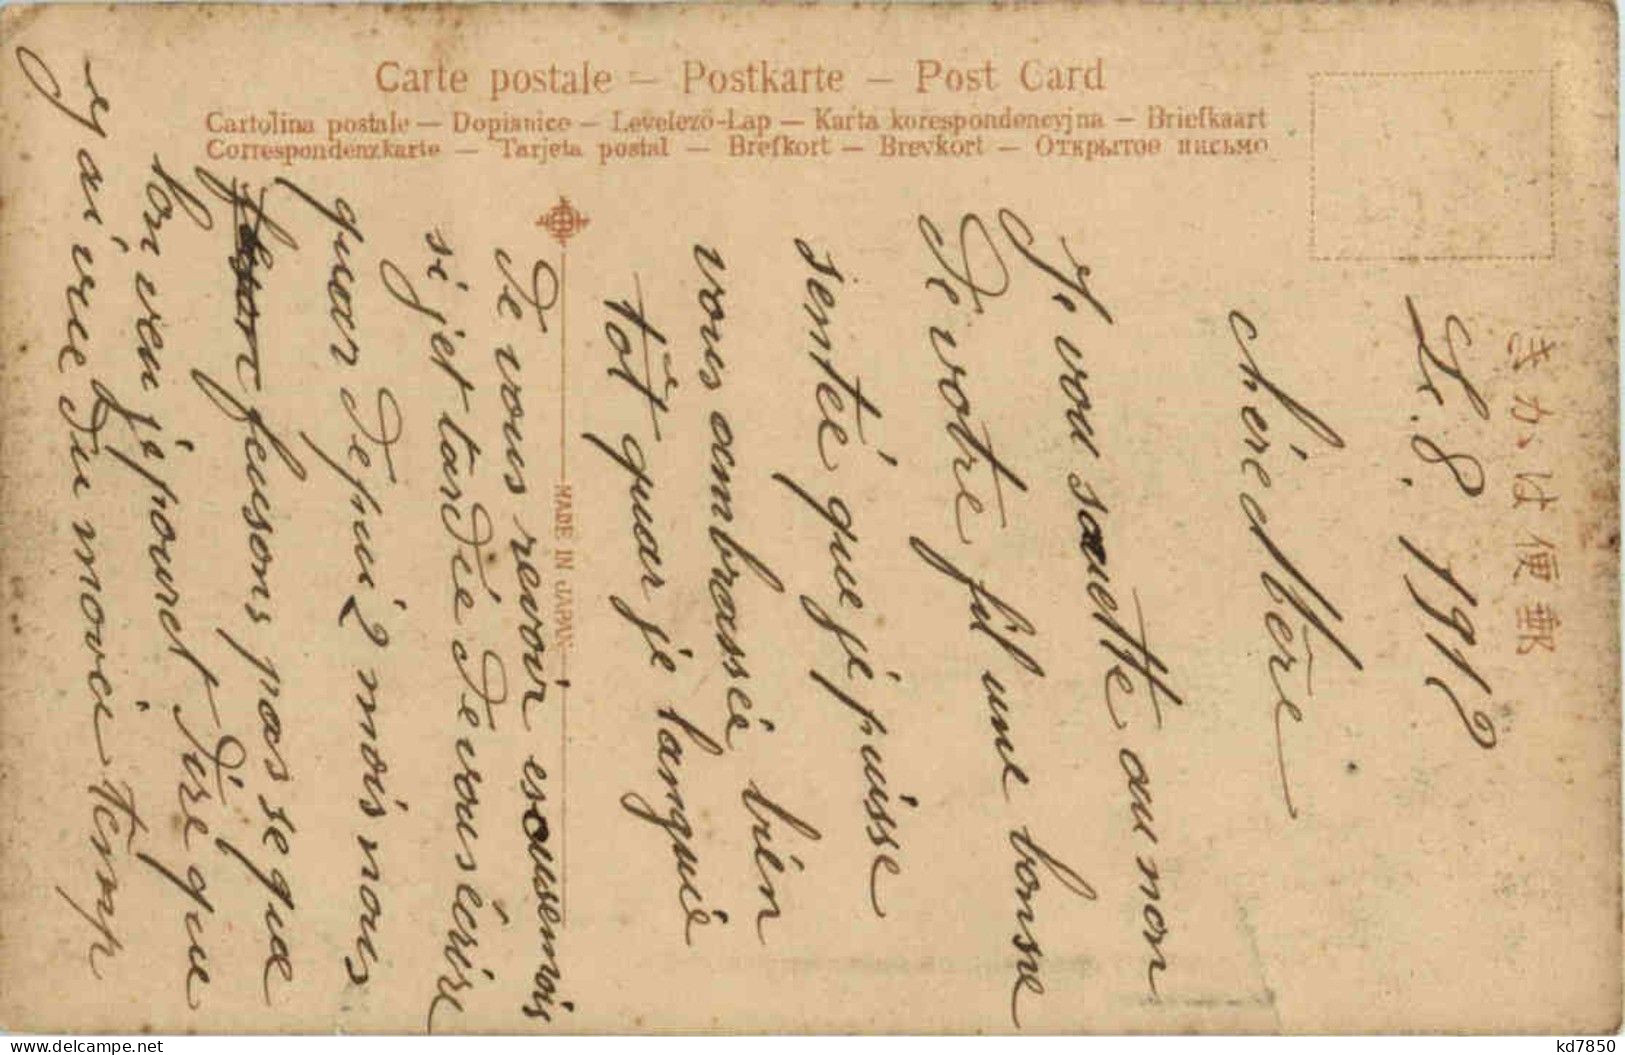 Carte postale — Postkarte — Post Card
Cartolina postale — Dopisnice — Levelező-Lap — Karta korespondencyjna — Briefkaart
Correspondenzkarte — Tarjeta postal — Brefkort — Brevkort — Открытое письмо
きかは便郵
MADE IN JAPAN
Le. 8. 1912
chère Mère
Je vou sauette au non
De votre fil une bonne
semtée que je puisse
vous ambrassée bien
tôt quar je languie
De vous revoir escusemois
si jet tardié De vous écrire
quar Depui 2 mois nous
feusons pas se que
lon veu je pouret Dire que
ej ai vue du movée temp
kd7850